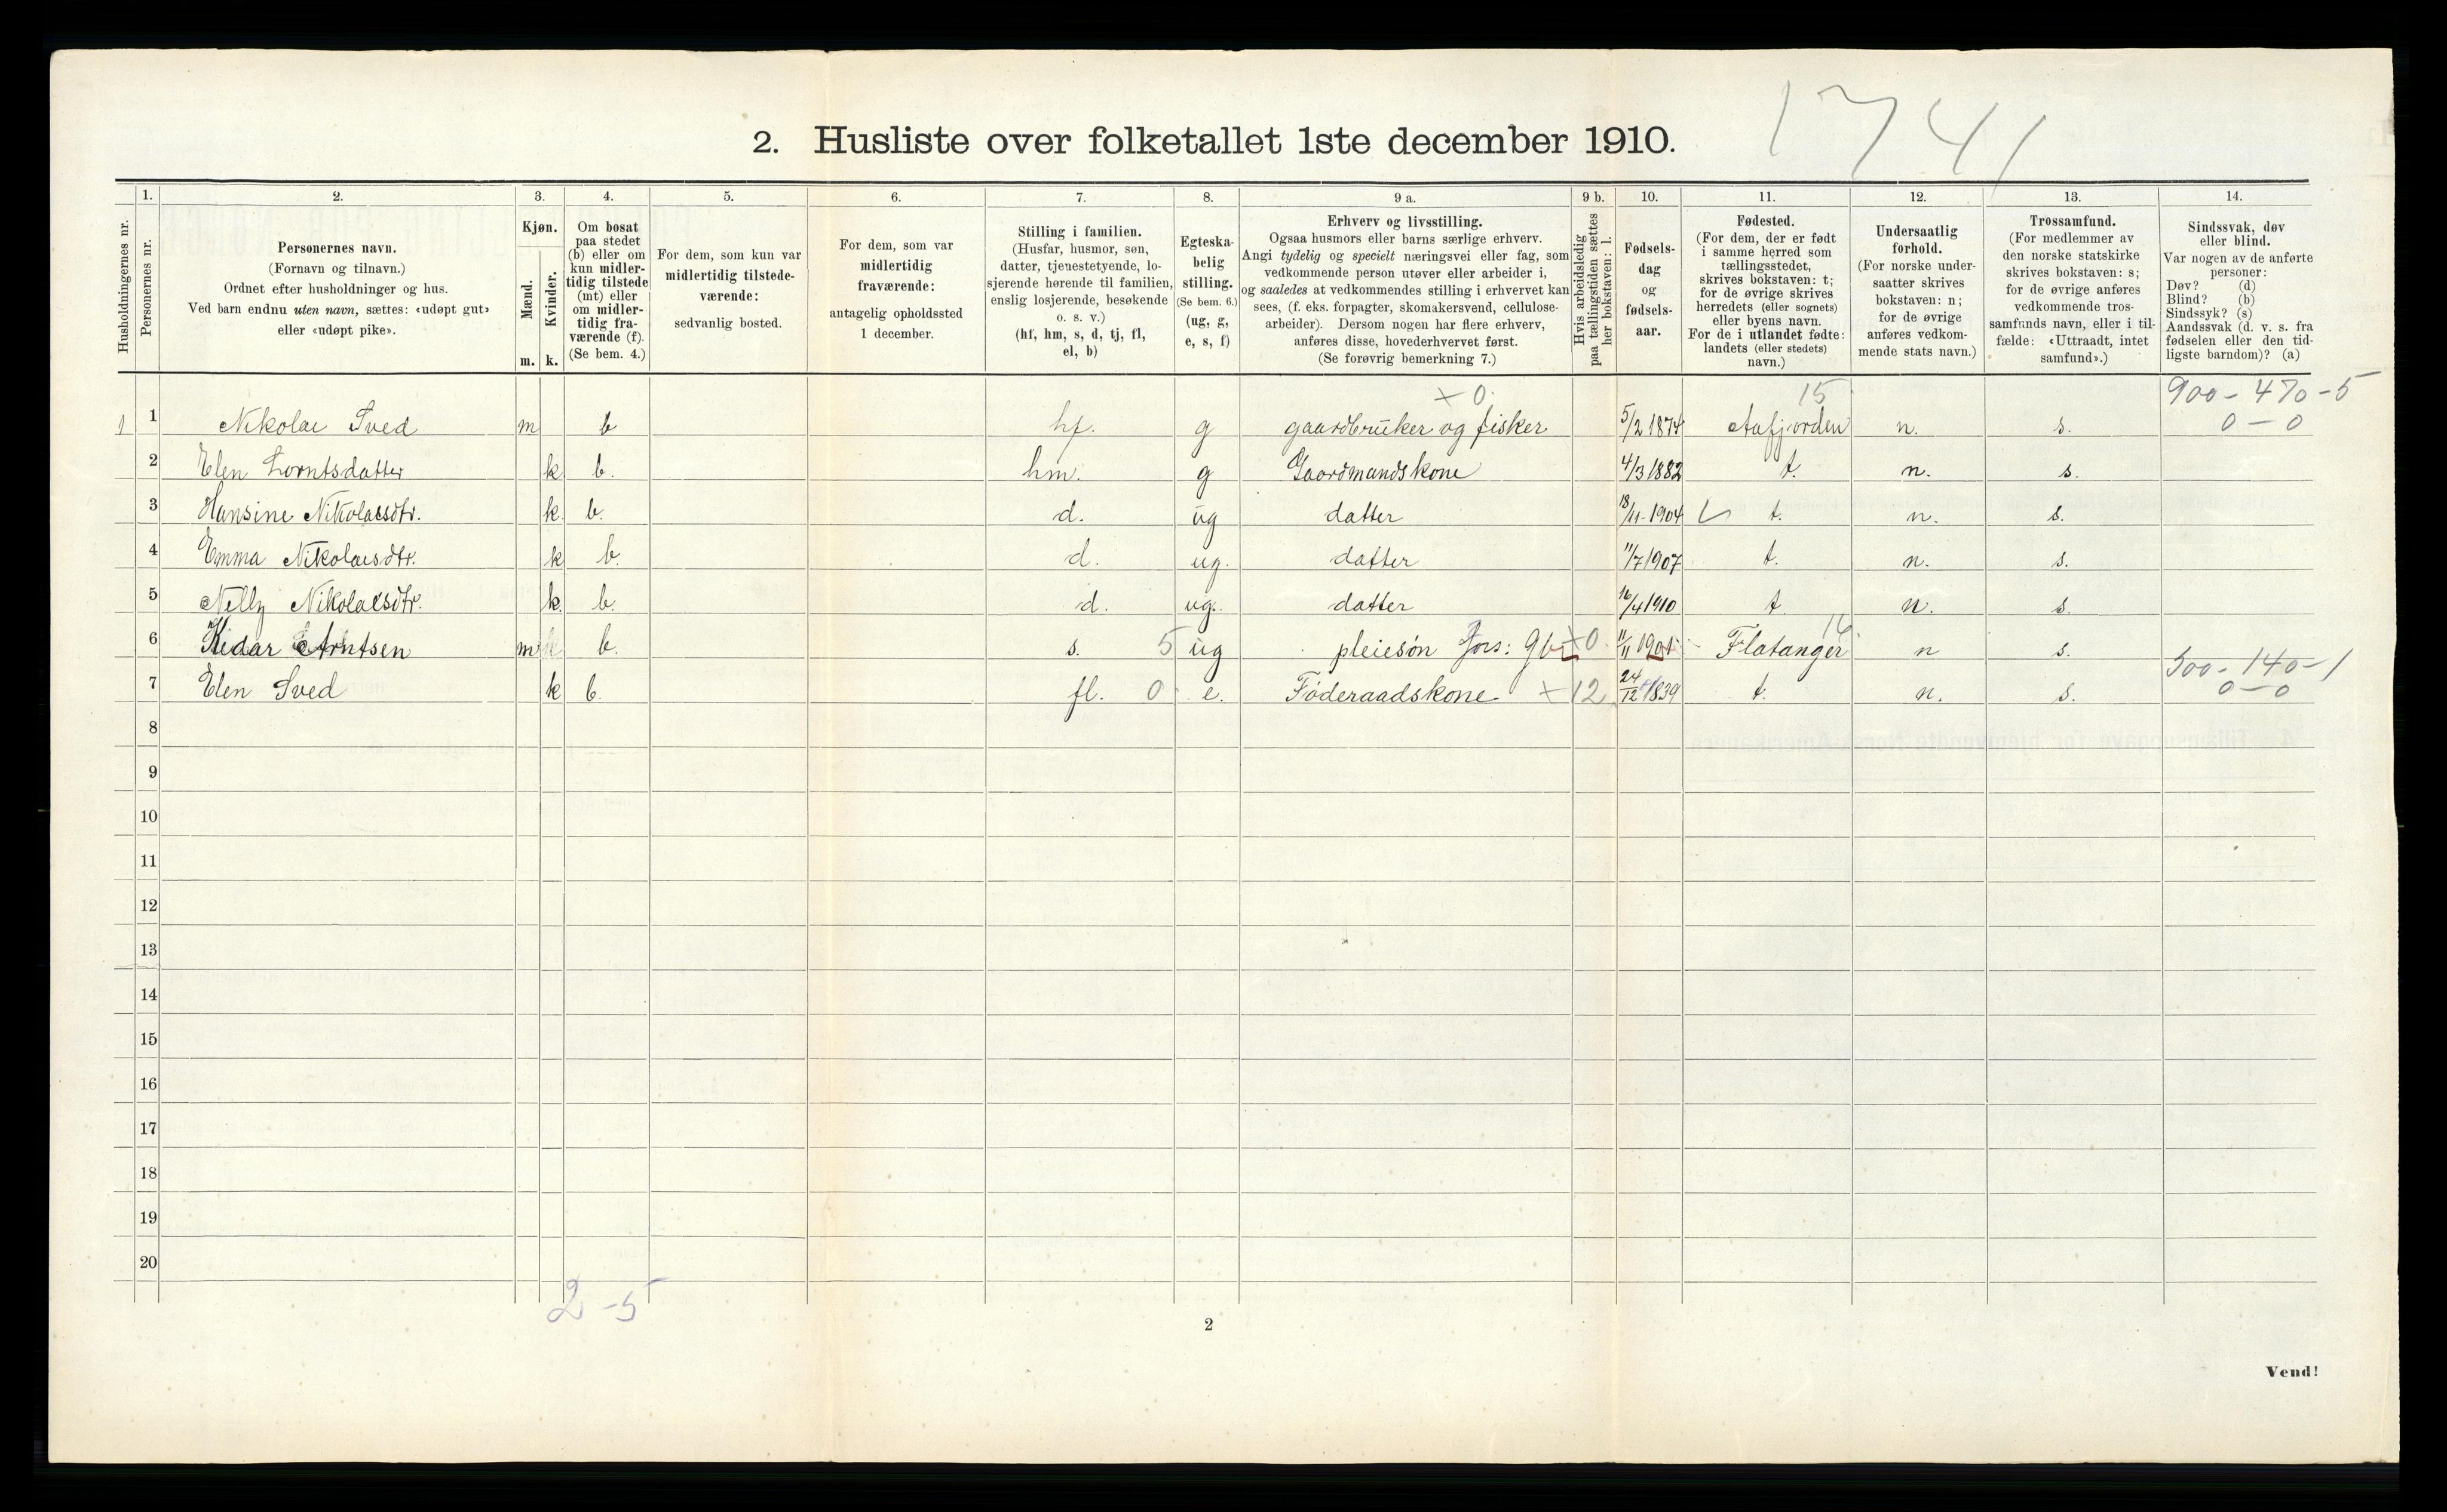 1741
2. Husliste over folketallet 1ste december 1910.
1. 2. 3. 4. 5. 6. 7. 8. 9 a. 9 b. 10. 11. 12. 13. 14.
Husholdningernes nr.
Personernes nr.
Personernes navn.
(Fornavn og tilnavn.)
Ordnet efter husholdninger og hus.
Ved barn endnu uten navn, sættes: «udøpt gut»
eller «udøpt pike».
Kjøn.
Mænd.
Kvinder.
m. k.
Om bosat
paa stedet
(b) eller om
kun midler-
tidig tilstede
(mt) eller
om midler-
tidig fra-
værende (f).
(Se bem. 4.)
For dem, som kun var
midlertidig tilstede-
værende:
sedvanlig bosted.
For dem, som var
midlertidig
fraværende:
antagelig opholdssted
1 december.
Stilling i familien.
(Husfar, husmor, søn,
datter, tjenestetyende, lo-
sjerende hørende til familien,
enslig losjerende, besøkende
o. s. v.)
(hf, hm, s, d, tj, fl,
el, b)
Egteska-
belig
stilling.
(Se bem. 6.)
(ug, g,
e, s, f)
Erhverv og livsstilling.
Ogsaa husmors eller barns særlige erhverv.
Angi tydelig og specielt næringsvei eller fag, som
vedkommende person utøver eller arbeider i,
og saaledes at vedkommendes stilling i erhvervet kan
sees, (f. eks. forpagter, skomakersvend, cellulose-
arbeider). Dersom nogen har flere erhverv,
anføres disse, hovederhvervet først.
(Se forøvrig bemerkning 7.)
Hvis arbeidsledig
paa tællingstiden sættes
her bokstaven: l.
Fødsels-
dag
og
fødsels-
aar.
Fødested.
(For dem, der er født
i samme herred som
tællingsstedet,
skrives bokstaven: t;
for de øvrige skrives
herredets (eller sognets)
eller byens navn.
For de i utlandet fødte:
landets (eller stedets)
navn.)
Undersaatlig
forhold.
(For norske under-
saatter skrives
bokstaven: n;
for de øvrige
anføres vedkom-
mende stats navn.)
Trossamfund.
(For medlemmer av
den norske statskirke
skrives bokstaven: s;
for de øvrige anføres
vedkommende tros-
samfunds navn, eller i til-
fælde: «Uttraadt, intet
samfund».)
Sindssvak, døv
eller blind.
Var nogen av de anførte
personer:
Døv? (d)
Blind? (b)
Sindssyk? (s)
Aandssvak (d. v. s. fra
fødselen eller den tid-
ligste barndom)? (a)
× 0. 15 900 - 470 - 5
1 1 Nikolai Sved m b hf. g gaardbruker og fisker 5/2 1874 Aafjorden n. s. 0 - 0
2 Elen Lorntsdatter k b. hm. g Gaardmandskone 4/3 1882 t. n. s.
3 Hansine Nikolaisdtr. k b. d. ug datter 18/11-1904 t. n. s.
4 Emma Nikolaisdtr. k b. d. ug. datter 11/7 1907 t. n. s.
5 Nelly Nikolaisdtr. k. b. d. ug. datter 16/4 1910 t. n. s.
16.
6 Arntsen m b. s. 5 ug pleiesøn fors: ×0 11/11 1901 Flatanger n s.
300 - 140 - 1
7 Elen Sved k b. fl. 0 e. Føderaadskone × 12 24/12 1839 t. n. s. 0 - 0
8
9
10
11
12
13
14
15
16
17
18
19
20
2 - 5
2
Vend!